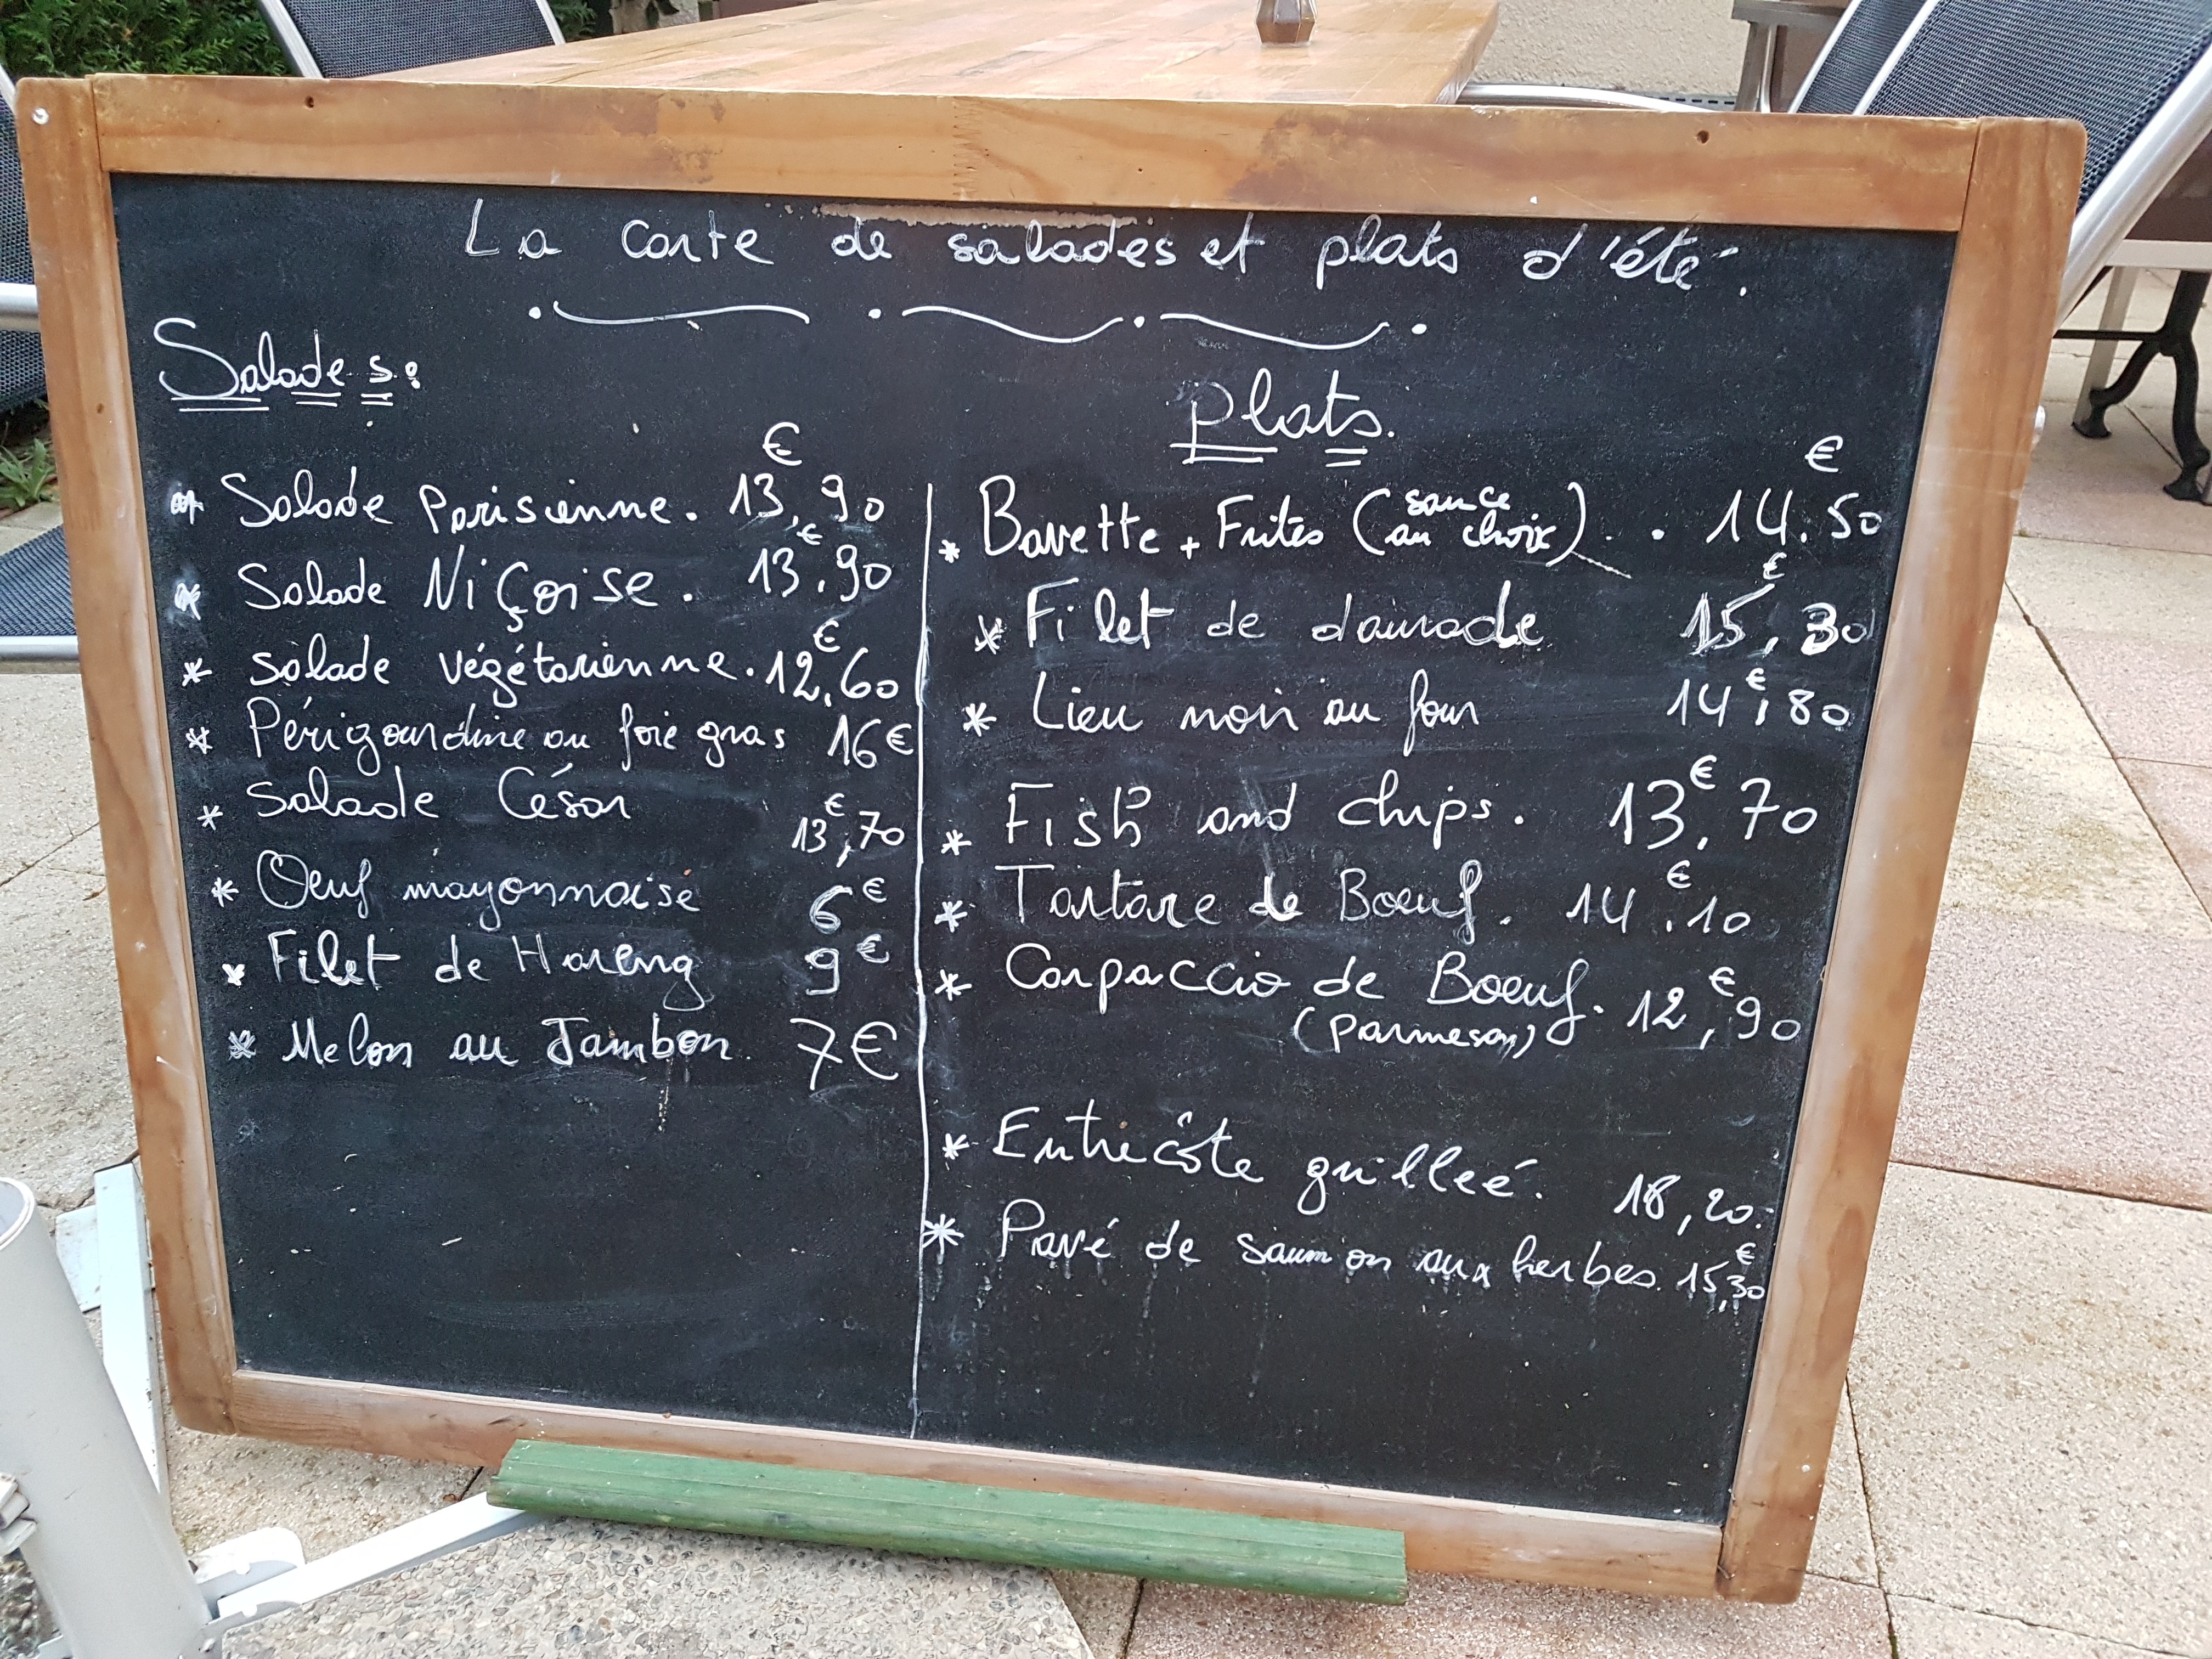 La carte de salades et plats d'été.
Salades:
* Salade Parisienne. 13,€90
* Salade Niçoise. 13,€90
* Salade végétarienne. 12,€60
* Périgourdine au foie gras 16€
* Salade César 13,€70
* Oeuf mayonnaise 6€
* Filet de Hareng 9€
* Melon au Jambon. 7€
Plats.
* Bavette + Frites (sauce au choix) . . 14.€50
* Filet de daurade 15,€30
* Lieu noir au four 14,€80
* Fish and chips. 13,€70
* Tartare de Boeuf. 14,€10
* Carpaccio de Boeuf. 12,€90
(parmesan)
* Entrecôte grilleé. 18,20.
* Pavé de saumon aux herbes. 15,€30